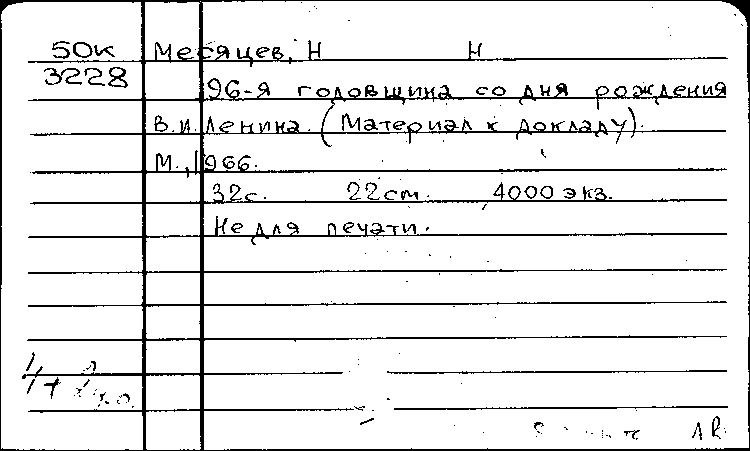 50к Месяцев, Н Н
3228
96-я годовщина со дня рождения
В.И. Ленина. (Материал к докладу).
М., 1966.
32с. 22cm. 4000 экз.
Не для печати.